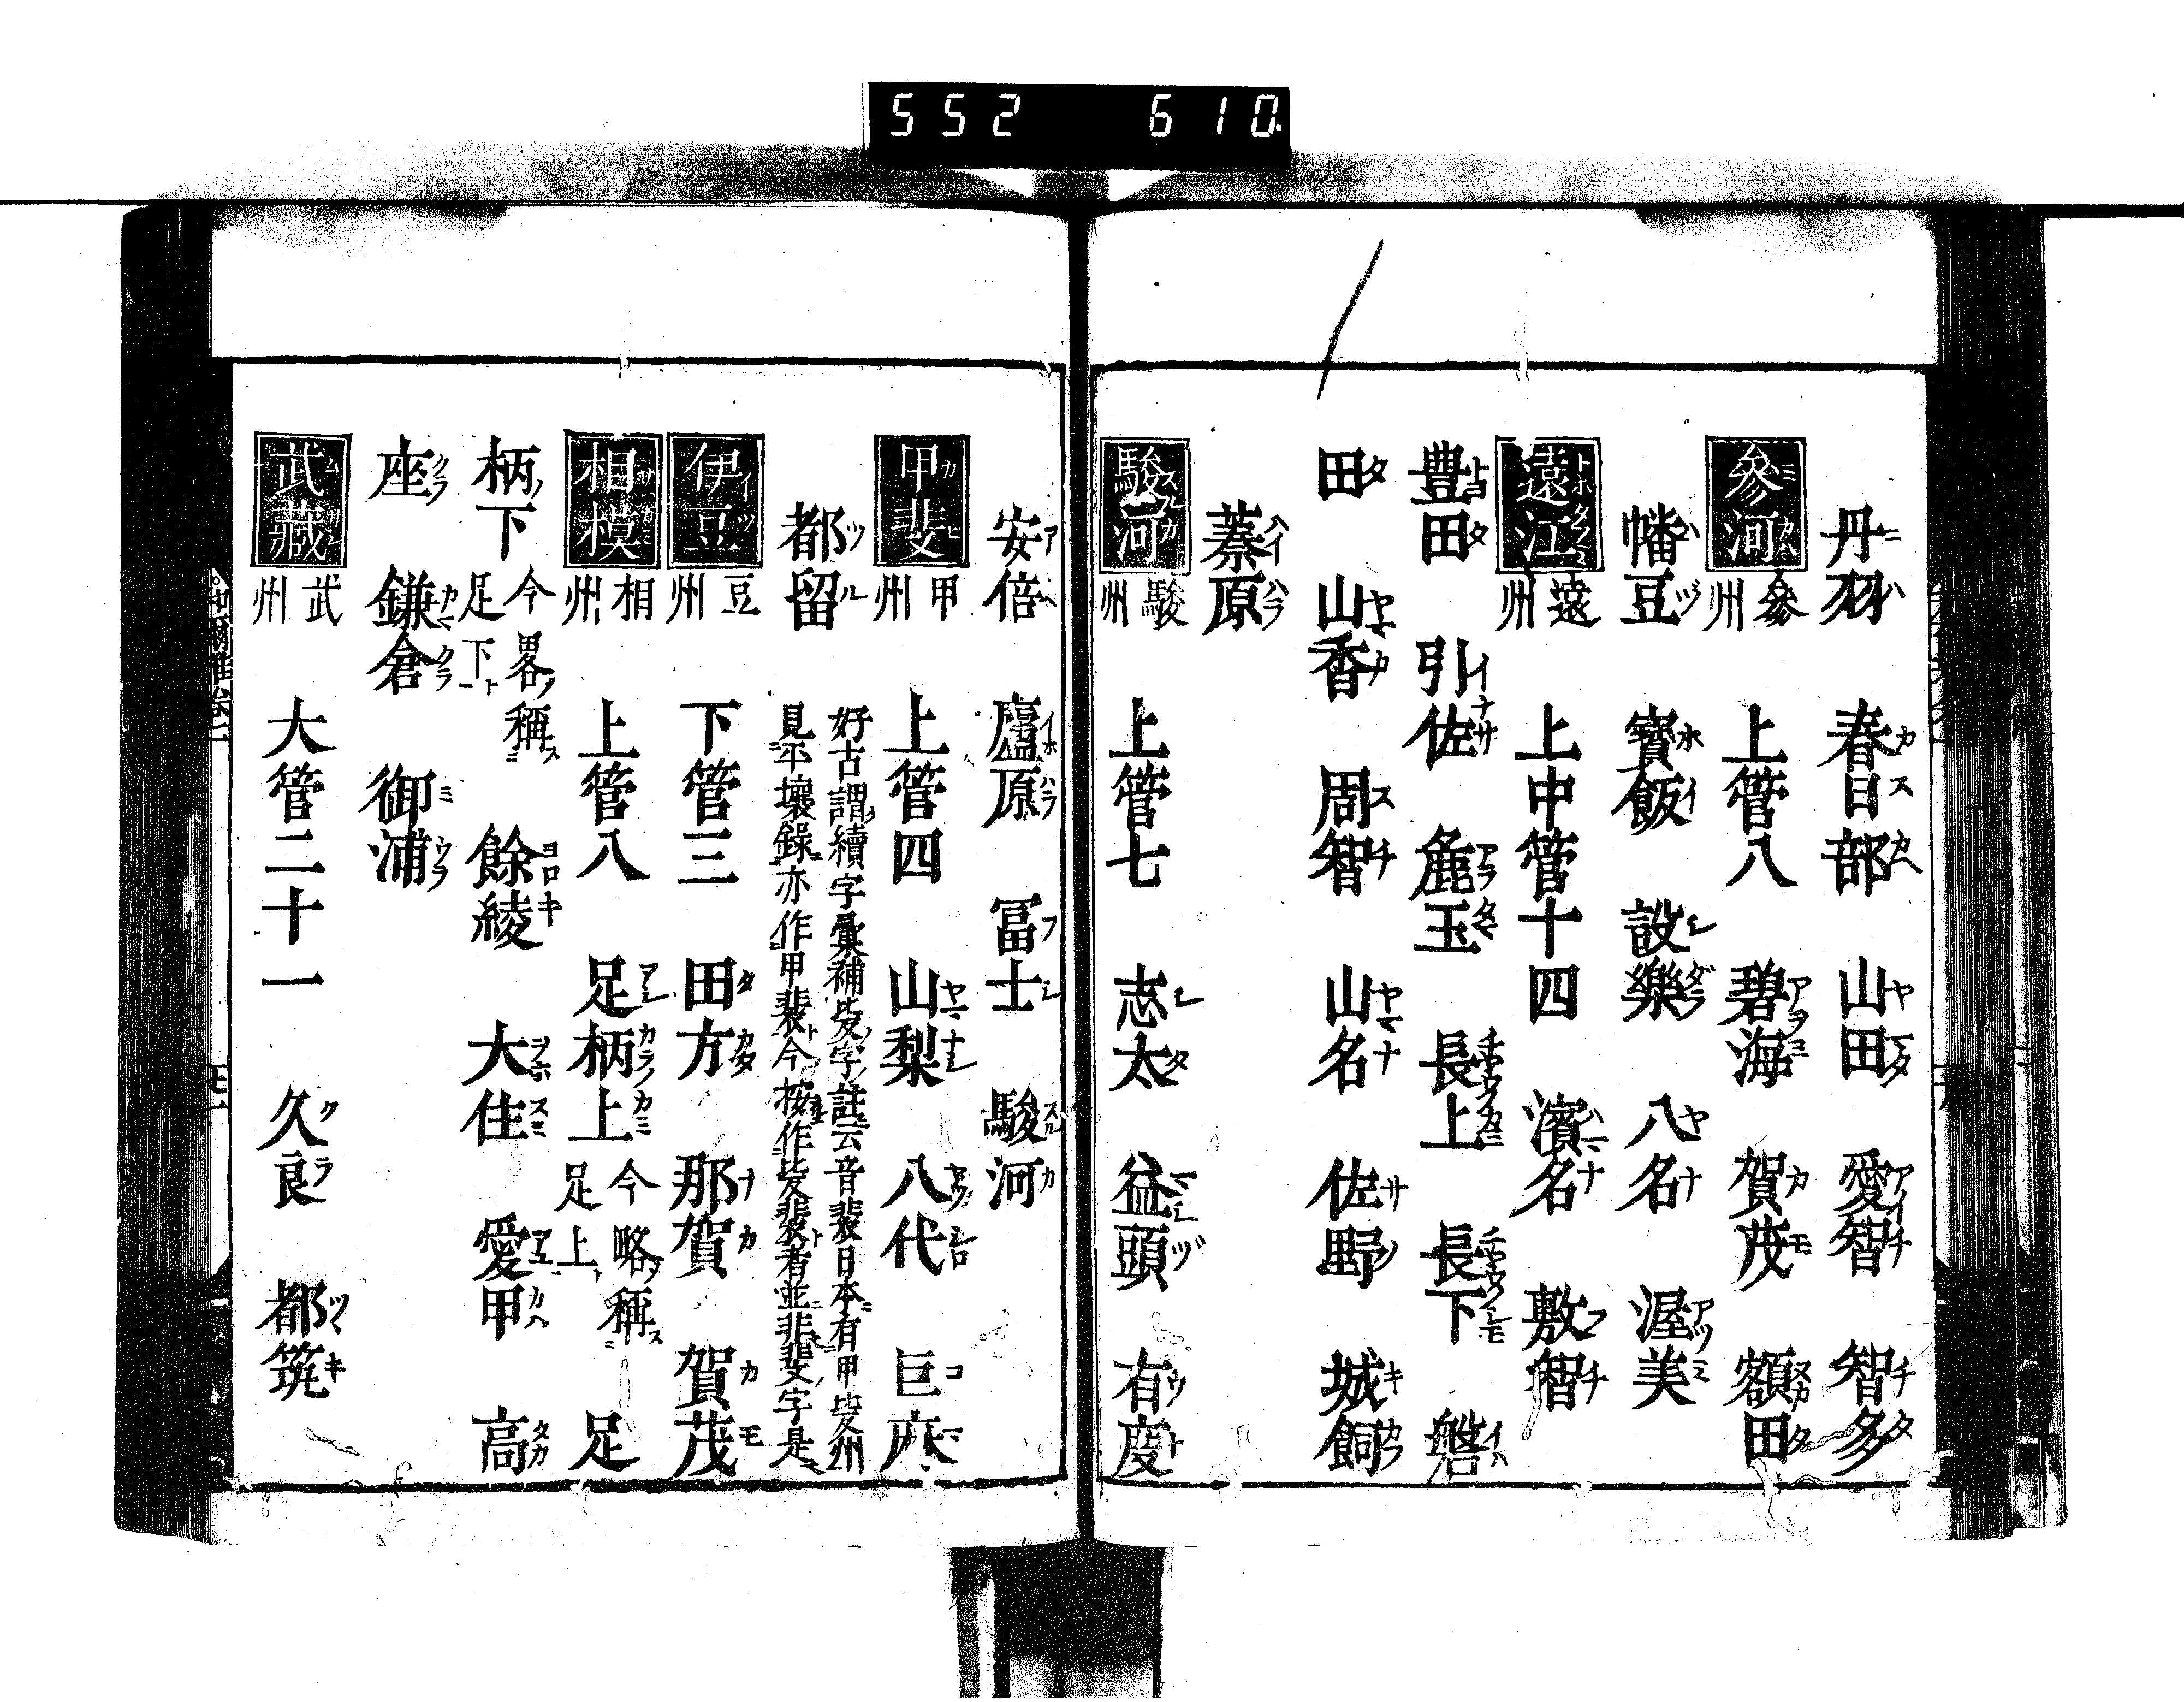 552 610.
丹羽 春日部 山田 愛智 智多
參河 參州 上管八 碧海 賀茂 額田
幡豆 寶飯 設樂 八名 渥美
遠江 遠州 上中管十四 濱名 敷智
豊田 引佐 麁玉 長上 長下 磐
田 山香 周智 山名 佐野 城飼
蓁原
駿河 駿州 上管七 志太 益頭 有度
安倍 廬原 冨士 駿河
甲斐 甲州 上管四 山梨 八代 巨麻
都留 好古謂續字彙補㚻字註云音裴日本有甲㚻州
見平壤錄亦作甲裴今按作㚻裴者並非斐字是
伊豆 豆州 下管三 田方 那賀 賀茂
相模 相州 上管八 足柄上 今略稱足上 足
柄下 今畧稱足下 餘綾 大住 愛甲 高
座 鎌倉 御浦
武藏 武州 大管二十一 久良 都筑